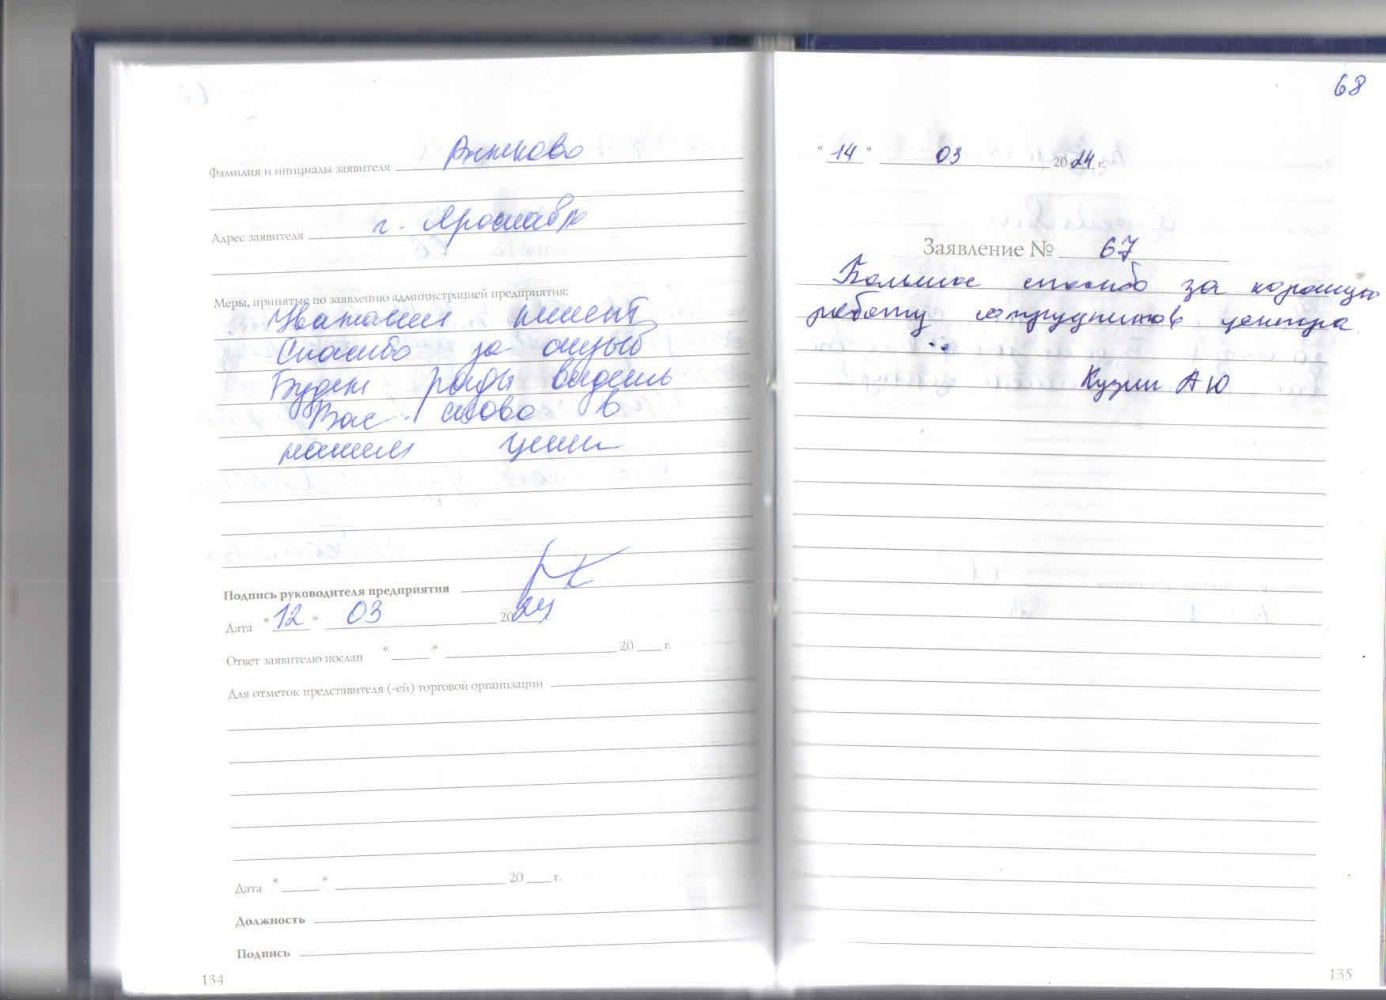 Фамилия и инициалы заявителя
Адрес заявителя г. Ярославль
Меры, принятые по заявлению администрацией предприятия:
Уважаемый клиент
Спасибо за отзыв
Будем рады видеть
Вас снова в
нашем
Подпись руководителя предприятия
Дата "12" 03 2024
Ответ заявителю послан "___" ___ 20 ___ г.
Для отметок представителя (-ей) торговой организации
Дата "___" ___ 20 ___ г.
Должность
Подпись
134
68
"14" 03 2024 г.
Заявление № 67
Большое спасибо за хорошую
работу сотрудников центра
Кузин А Ю
135